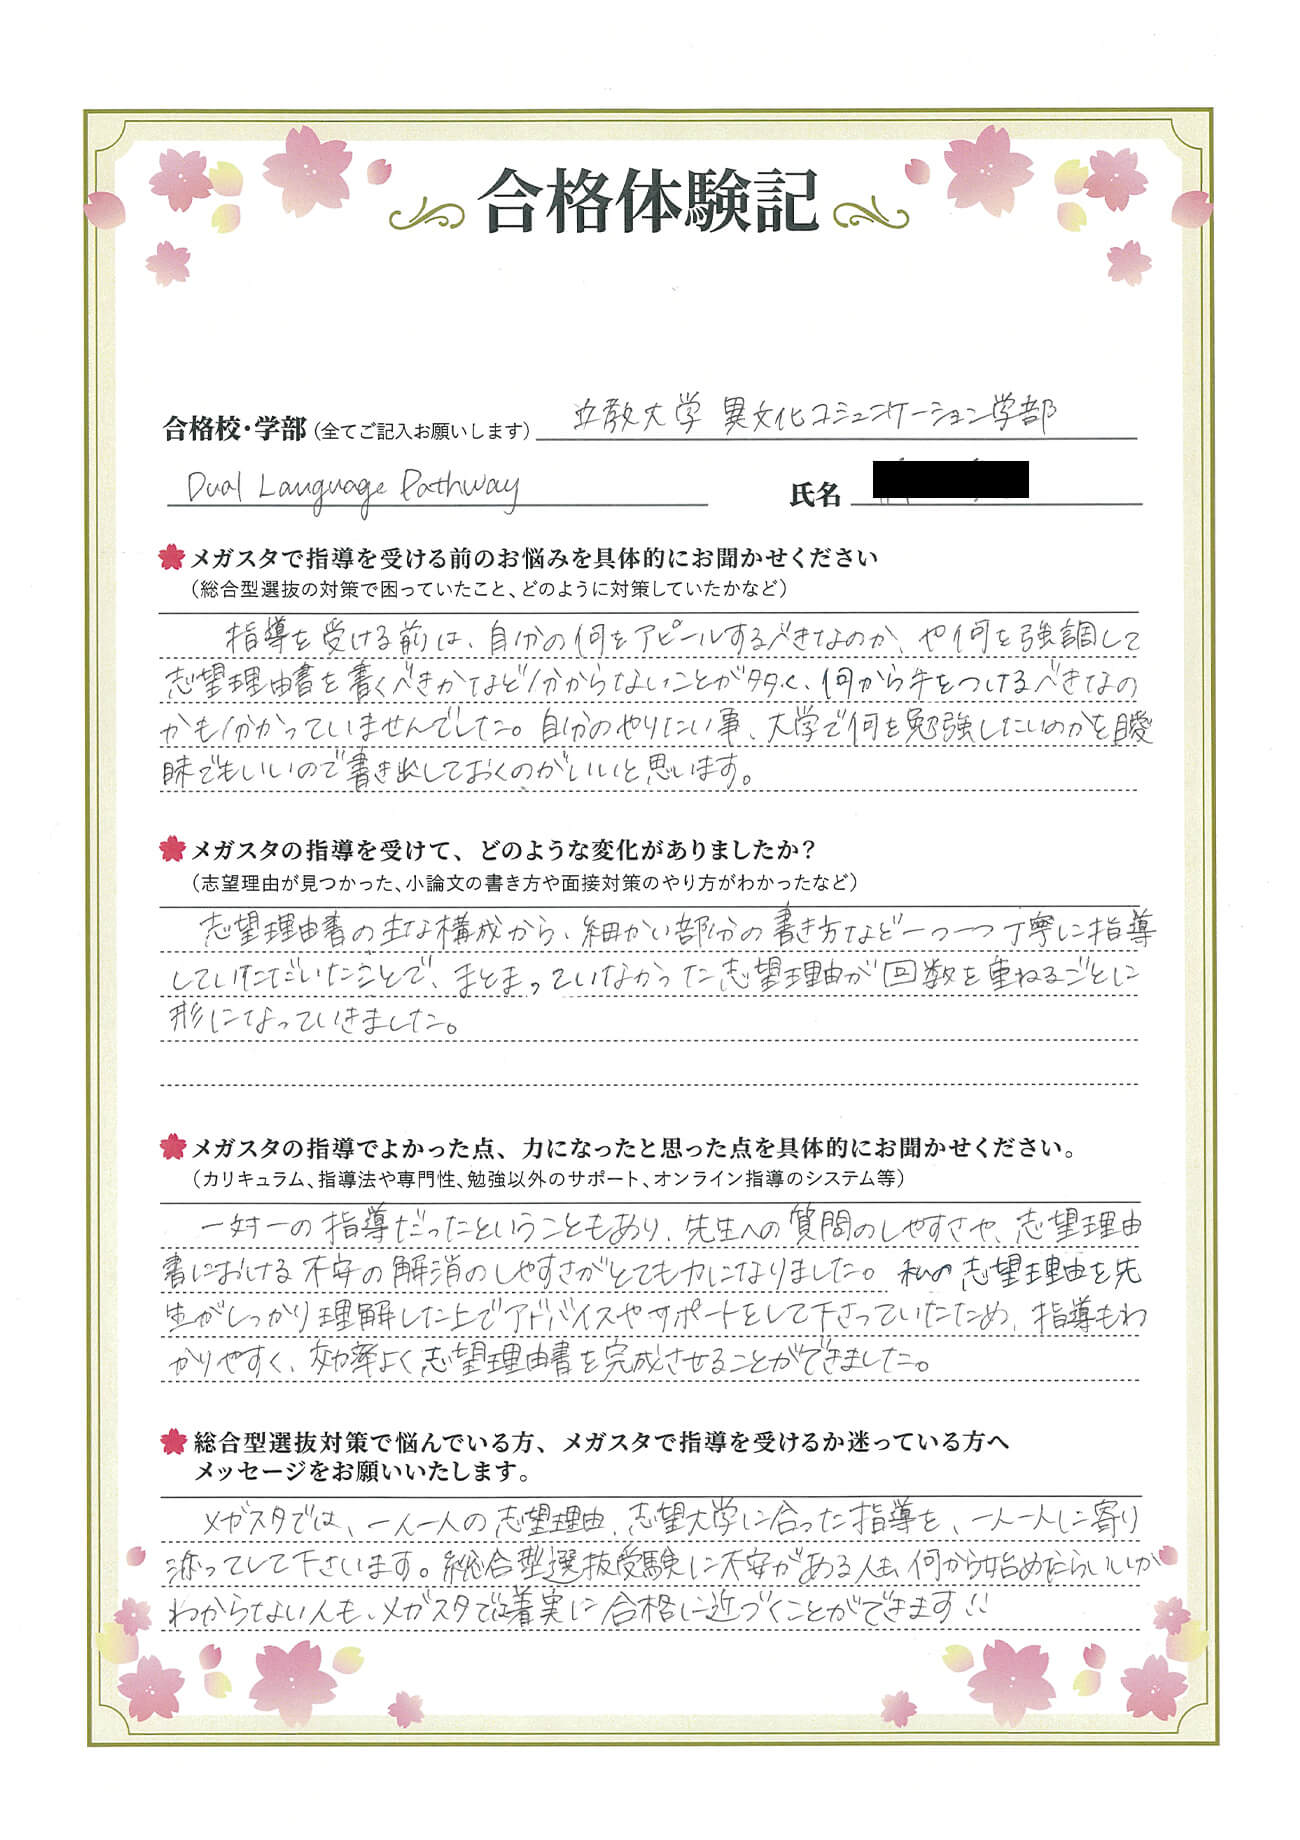 合格体験記
合格校・学部（全てご記入お願いします） 立教大学 異文化コミュニケーション学部
Dual Language Pathway 氏名
メガスタで指導を受ける前のお悩みを具体的にお聞かせください
（総合型選抜の対策で困っていたこと、どのように対策していたかなど）
指導を受ける前は、自分の何をアピールするべきなのか、や何を強調して
志望理由書を書くべきかなど分からないことが多く、何から手をつけるべきなの
かも分かっていませんでした。自分のやりたい事、大学で何を勉強したいのかを曖
昧でもいいので書き出しておくのがいいと思います。
メガスタの指導を受けて、どのような変化がありましたか？
（志望理由が見つかった、小論文の書き方や面接対策のやり方がわかったなど）
志望理由書の主な構成から、細かい部分の書き方など一つ一つ丁寧に指導
していただいたことで、まとまっていなかった志望理由が回数を重ねるごとに
形になっていきました。
メガスタの指導でよかった点、力になったと思った点を具体的にお聞かせください。
（カリキュラム、指導法や専門性、勉強以外のサポート、オンライン指導のシステム等）
一対一の指導だったということもあり、先生への質問のしやすさや、志望理由
書における不安の解消のしやすさがとても力になりました。私の志望理由を先
生がしっかり理解した上でアドバイスやサポートをして下さっていたため、指導もわ
かりやすく、効率よく志望理由書を完成させることができました。
総合型選抜対策で悩んでいる方、メガスタで指導を受けるか迷っている方へ
メッセージをお願いいたします。
メガスタでは、一人一人の志望理由、志望大学に合った指導を、一人一人に寄り
添ってして下さいます。総合型選抜受験に不安がある人も、何から始めたらいいか
わからない人も、メガスタで着実に合格に近づくことができます!!